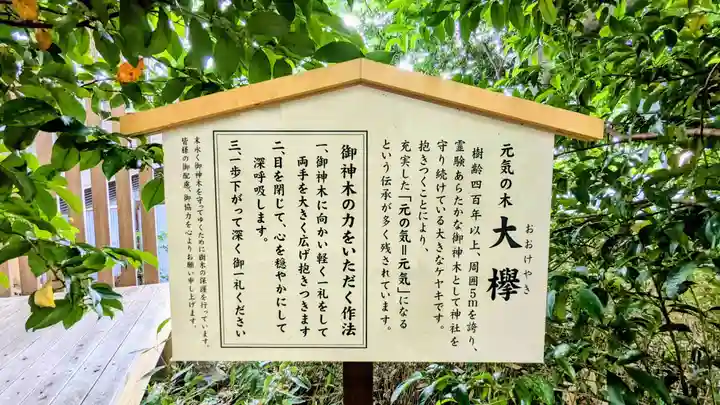 元気の木 大欅
おおけやき
樹齢四百年以上、周囲5mを誇り、
霊験あらたかな御神木として神社を
守り続けている大きなケヤキです。
抱きつくことにより、
充実した「元の気=元気」になる
という伝承が多く残されています。
御神木の力をいただく作法
一、御神木に向かい軽く一礼をして
両手を大きく広げ抱きつきます
二、目を閉じて、心を穏やかにして
深呼吸します。
三、一歩下がって深く御一礼ください
末永く御神木を守ってゆくために樹木の保護を行っています。
皆様の御配慮、御協力を心よりお願い申し上げます。